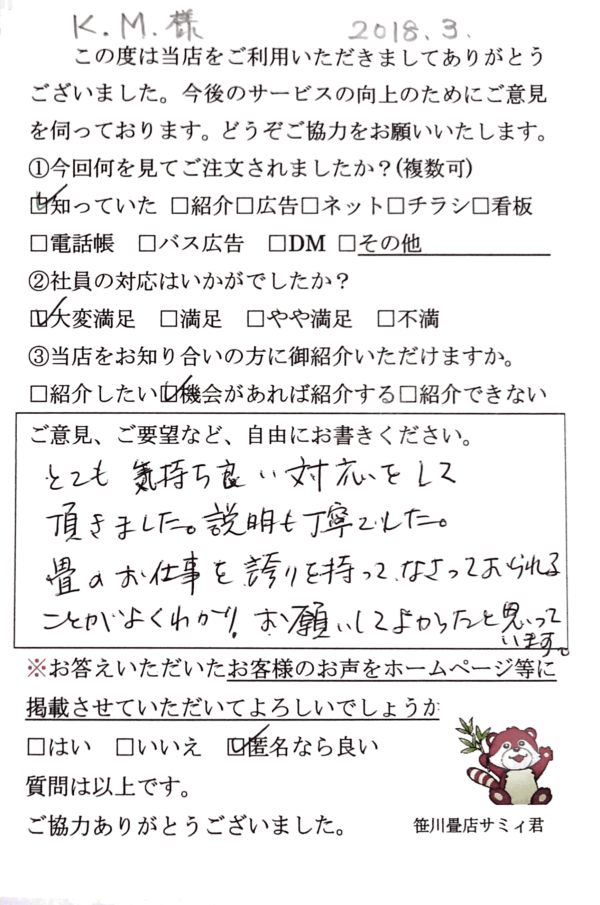 K.M.様 2018.3.
この度は当店をご利用いただきましてありがとう
ございました。今後のサービスの向上のためにご意見
を伺っております。どうぞご協力をお願いいたします。
①今回何を見てご注文されましたか？(複数可)
☑知っていた □紹介□広告□ネット□チラシ□看板
□電話帳 □バス広告 □DM □その他
②社員の対応はいかがでしたか？
☑大変満足 □満足 □やや満足 □不満
③当店をお知り合いの方に御紹介いただけますか。
□紹介したい☑機会があれば紹介する□紹介できない
ご意見、ご要望など、自由にお書きください。
とても気持ち良い対応をして
頂きました。説明も丁寧でした。
畳のお仕事を誇りを持って、なさっておられる
ことがよくわかり、お願いしてよかったと思って
います。
※お答えいただいたお客様のお声をホームページ等に
掲載させていただいてよろしいでしょうか
□はい □いいえ ☑匿名なら良い
質問は以上です。
ご協力ありがとうございました。
笹川畳店サミィ君